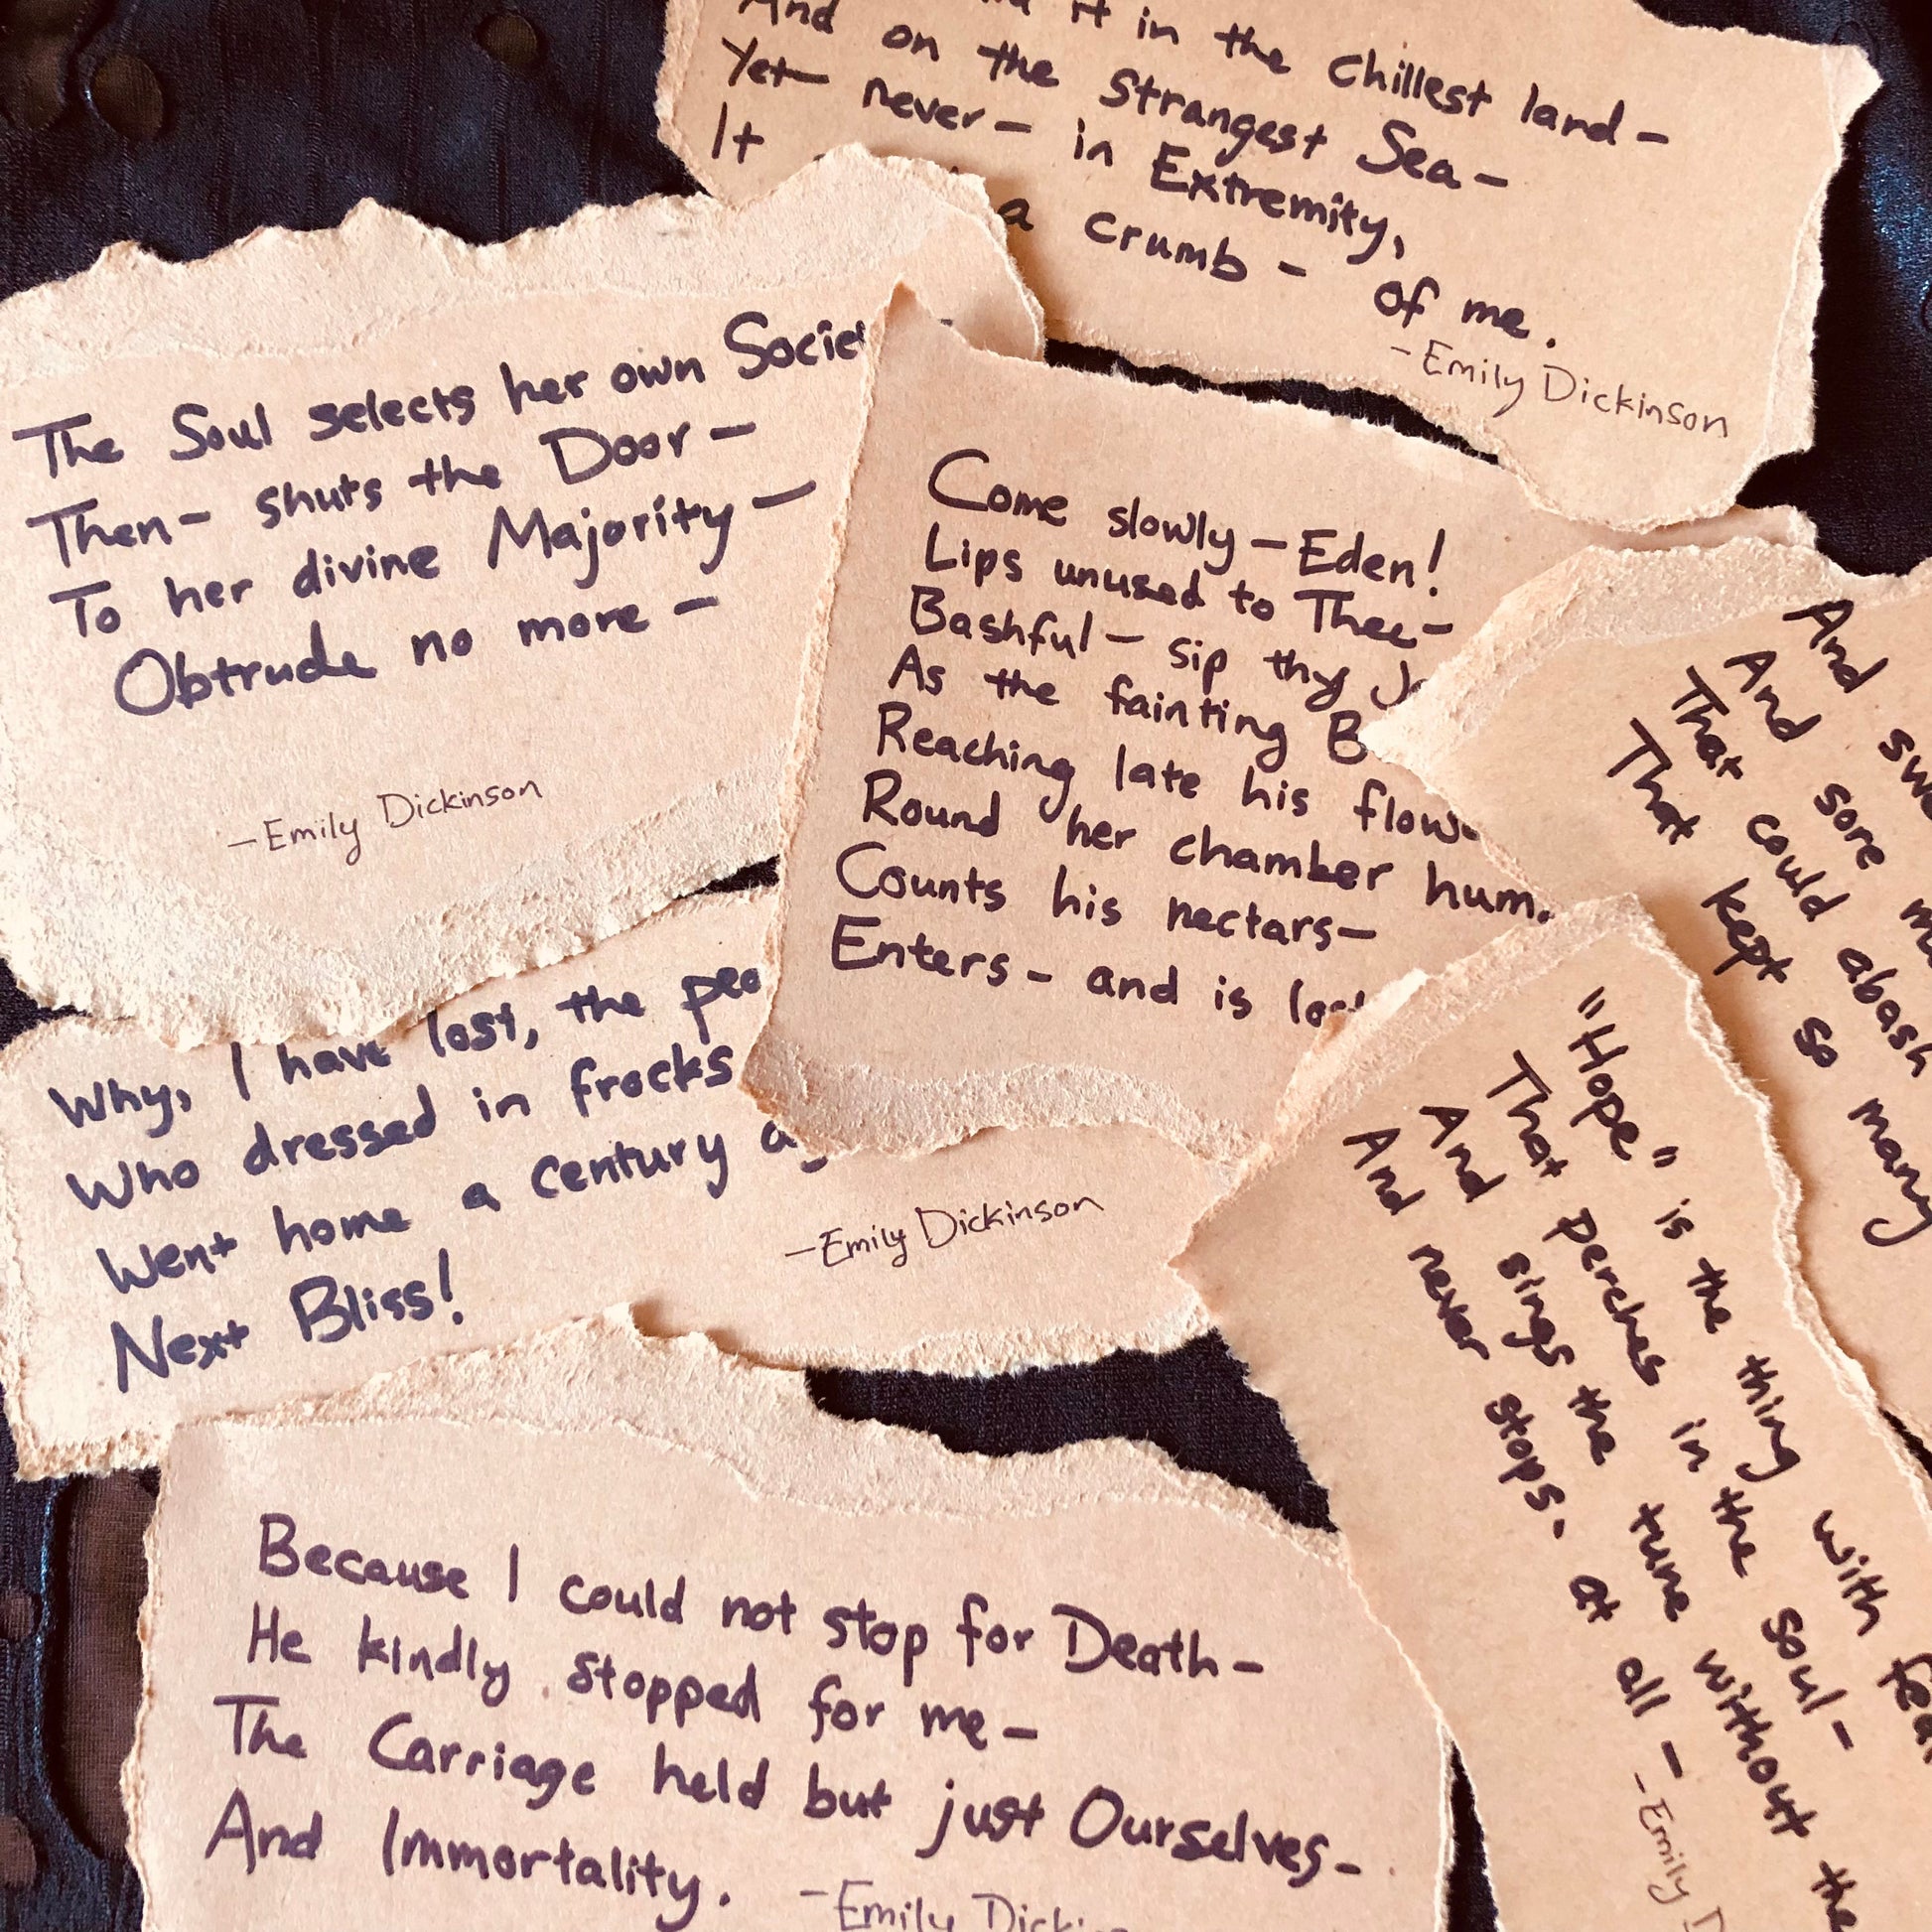 it in the Chillest land-
And on the Strangest Sea-
Yet never- in Extremity,
It a crumb- of me.
-Emily Dickinson
The Soul selects her own
Then- shuts the Door-
To her divine Majority-
Obtrude no more-
-Emily Dickinson
Come slowly-Eden!
Lips unused to Thee-
Bashful- sip thy
As the fainting
Reaching late his
Round her chamber
Counts his nectars-
Enters- and is
And
And sore
That could abash
That kept so many
Why, I have lost, the
Who dressed in frocks
Went home a century
Next Bliss!
-Emily Dickinson
"Hope" is the thing with
That perches in the soul-
And sings the tune without the
And never stops- at all-
-Emily
Because I could not stop for Death-
He kindly stopped for me-
The Carriage held but just Ourselves-
And Immortality.
-Emily